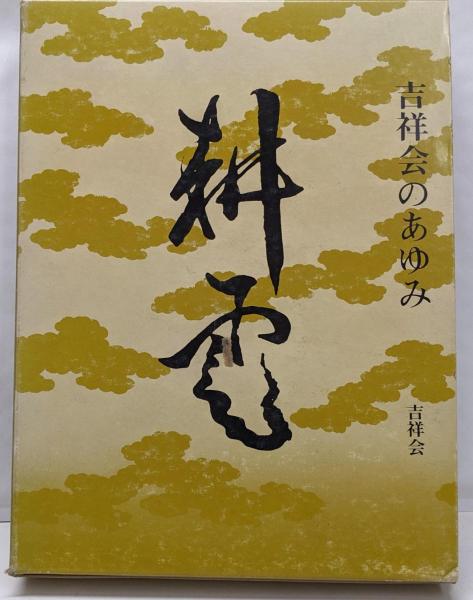 吉祥会のあゆみ
耕雲
吉祥会